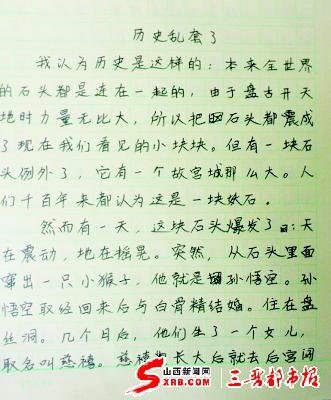 历史乱套了
我认为历史是这样的：本来全世界
的石头都是连在一起的，由于盘古开天
地时力量无比大，所以把石头都震成
了现在我们看见的小块块。但有一块石
头例外了，它有一个故宫城那么大。人
们千百年来都认为这是一块妖石。
然而有一天，这块石头爆发了：天
在震动，地在摇晃。突然，从石头里面
窜出一只小猴子，他就是孙悟空。孙
悟空取经回来后与白骨精结婚。住在盘
丝洞。几个日后，他们生了一个女儿，
取名叫慈禧。慈禧长大后就去后宫闯
山西新闻网
SXRB.COM
三晋都市报